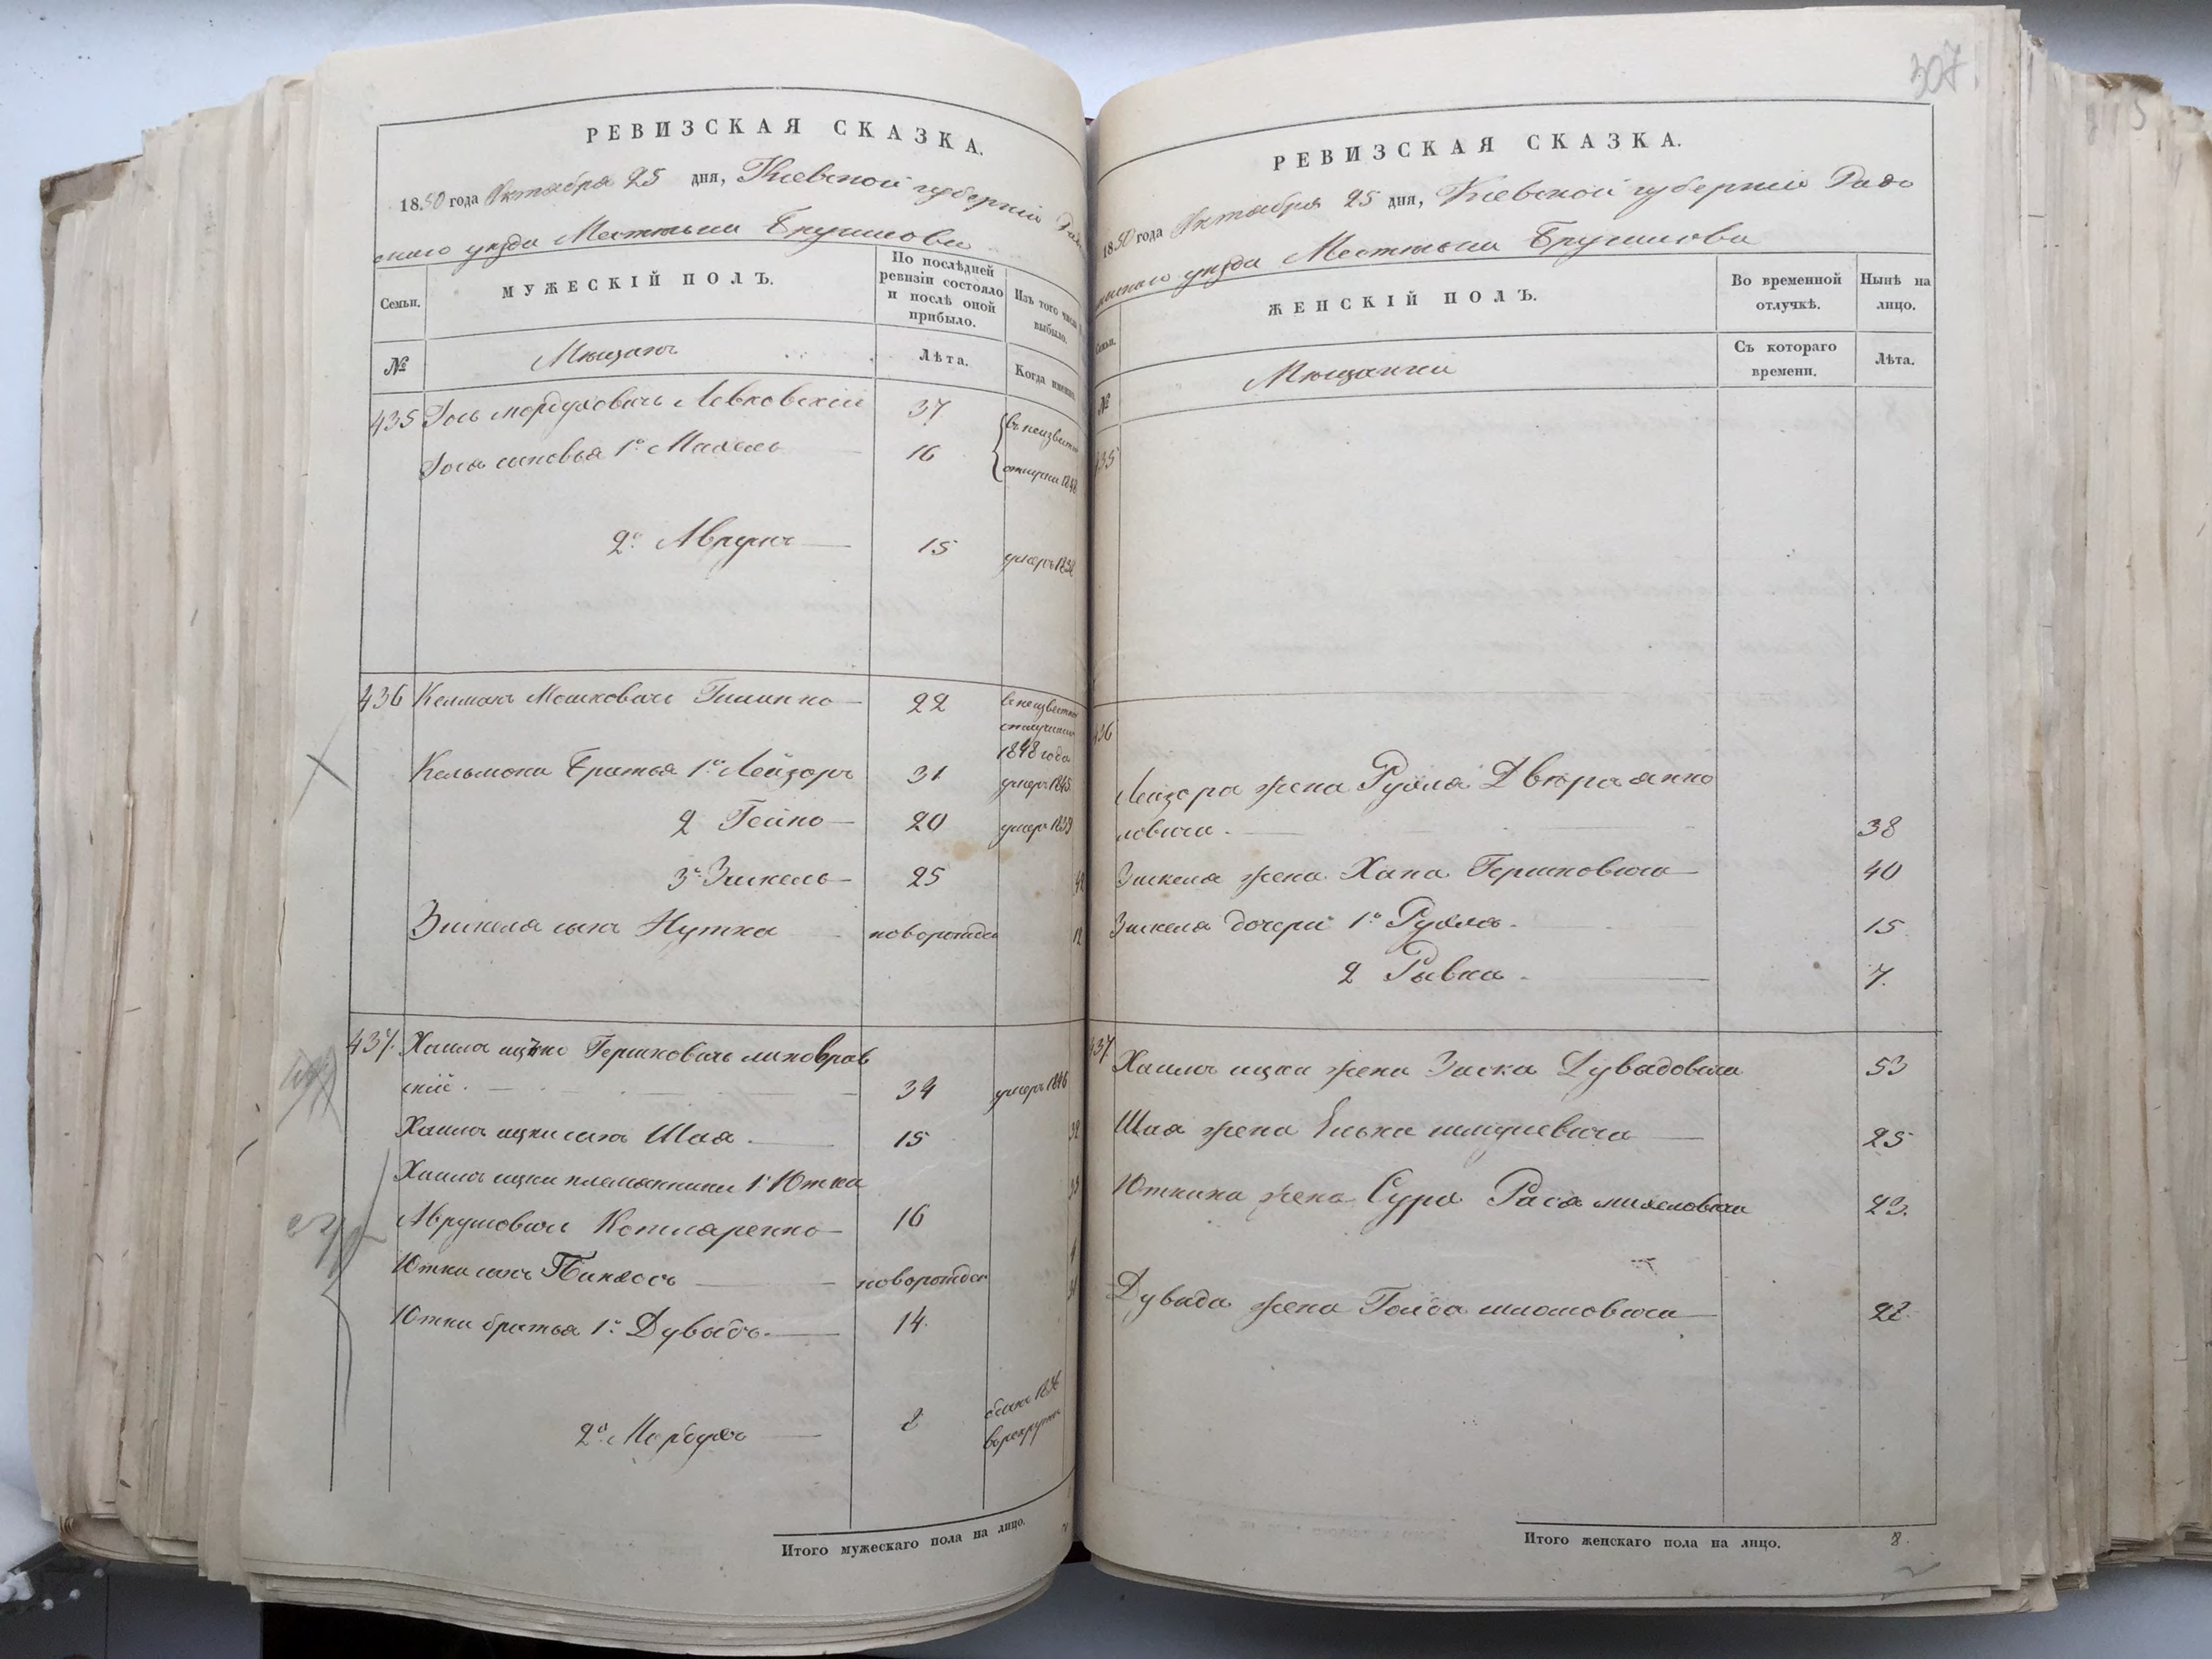 307
РЕВИЗСКАЯ СКАЗКА.
1850 года Октября 25 дня, Киевской губерніи Радо
мысло уезда Местечка Брусилова
Семьи.
МУЖЕСКІЙ ПОЛЪ.
По послѣдней ревизіи состояло и послѣ оной прибыло.
Изъ того числа выбыло.
№
Мещане
Лѣта.
Когда именно
435 Іось Мордуховичь Левковскій 37 въ неизвестной
Іося сыновья 1й Михель 16 отлучки 1848
2й Аврумъ 15 умеръ 1838
436 Келманъ Мошковичь 22 в неизвестной
отлучки
1848 года
Кельмана братья 1й Лейзоръ 31 умеръ 1845
2 Гейно 20 умеръ 1839
3й Зискель 25
Зискеля сынъ Нутка новорожден
437. Хаимъ ицко Гершковичь
скій. 34 умеръ 1846
Хаимъ ицки сынъ Шая 15
Хаимъ ицки племянники 1й Ютка
Аврумовичь Котляренко 16
Ютки сынъ Пинхосъ новорожден
Ютки братья 1й Дувыдъ 14.
2й Мордухъ 8
1836
Итого мужескаго пола на лицо.
РЕВИЗСКАЯ СКАЗКА.
1850 года Октября 25 дня, Киевской губерніи Радо
мысло уезда Местечка Брусилова
Семьи.
ЖЕНСКІЙ ПОЛЪ.
Во временной отлучкѣ.
Нынѣ на лицо.
№
Мещанки
Съ котораго времени.
Лѣта.
435
436
Лейзора жена Рухля
38
Зискеля жена Хана Гершковича 40
Зискеля дочери 1й Рухля 15
2 Ривка 7.
437 Хаимъ ицки жена Заска Дувидовича 53
Шая жена Елька шмулевича 25
Юткина жена Сура Рася михелевича 23.
Дувида жена Голда шломовича 22
Итого женскаго пола на лицо. 8.